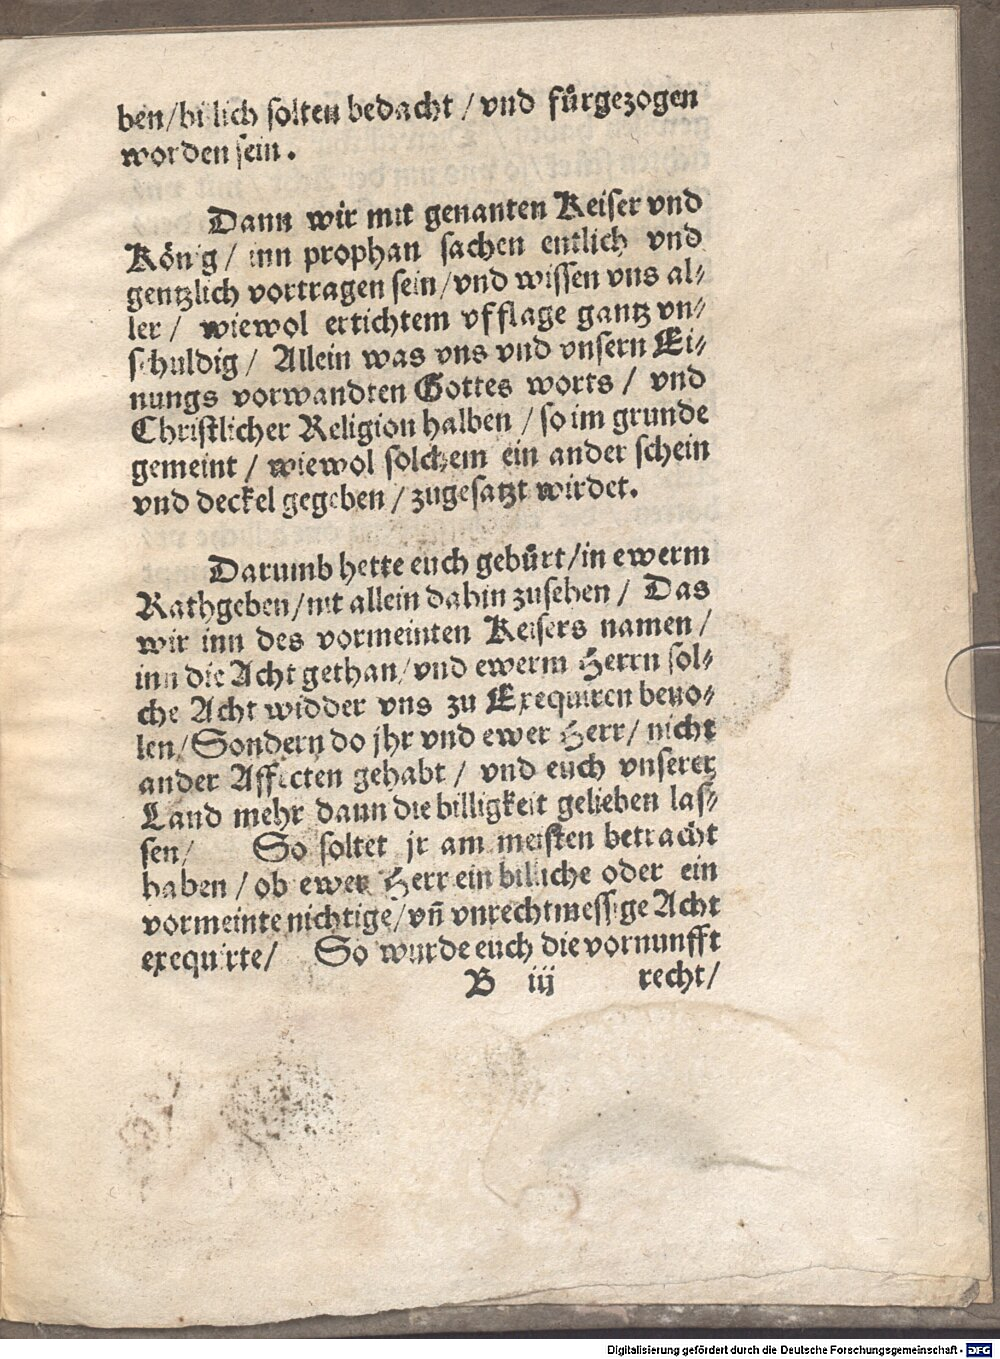 ben/billich solten bedacht / vnd fürgezogen
worden sein.
Dann wir mit genanten Keiser vnd
König / inn prophan sachen entlich vnd
gentzlich vortragen sein/vnd wissen vns al⸗
ler / wiewol ertichtem vfflage gantz vn⸗
schuldig / Allein was vns vnd vnsern Ei⸗
nungs vorwandten Gottes worts / vnd
Christlicher Religion halben / so im grunde
gemeint / wiewol solchem ein ander schein
vnd deckel gegeben / zugesatzt wirdet.
Darumb hette euch gebürt/in ewerm
Rathgeben/nit allein dahin zusehen / Das
wir inn des vormeinten Keisers namen /
inn die Acht gethan/vnd ewerm Herrn sol⸗
che Acht widder vns zu Exequiren beuo⸗
len/Sondern do jhr vnd ewer Herr/ nicht
ander Affecten gehabt / vnd euch vnserer
Land mehr dann die billigkeit gelieben las⸗
sen/ So soltet jr am meisten betracht
haben / ob ewer Herr ein billiche oder ein
vormeinte nichtige/vn̄ vnrechtmessige Acht
exequirte/ So wurde euch die vornunfft
B iij recht/
Digitalisierung gefördert durch die Deutsche Forschungsgemeinschaft - DFG